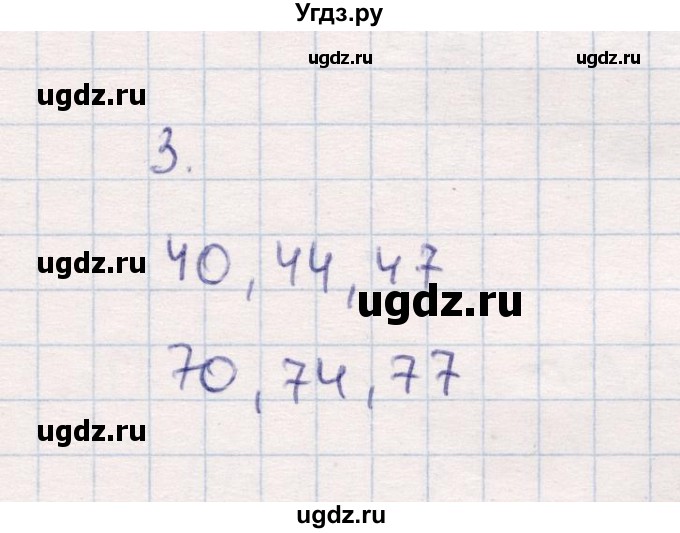 Угдз.ру
ugdz.ru ugdz.ru
ugdz.ru
3.
ugdz.ru
40, 44, 47
ugdz.ru
70, 74, 77
ugdz.ru
ugdz.ru